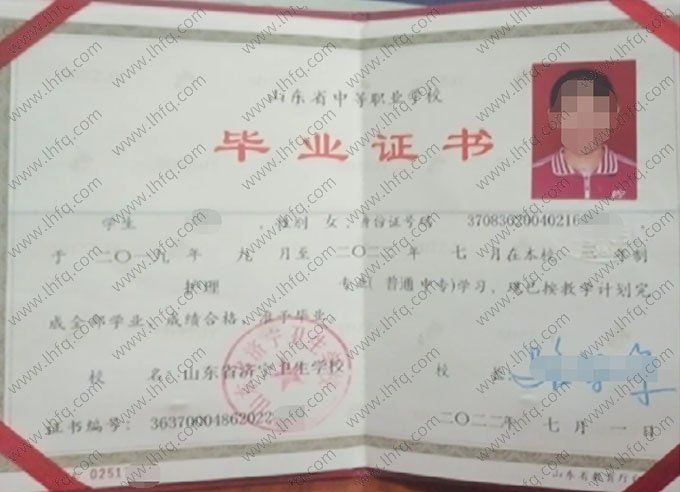 山东省中等职业学校
毕业证书
学生 , 性别 女、身份证号码 37083020040216
于 二〇一九 年 九 月至 二〇二二 年 七 月在本校 三 年制
护理 专业( 普通中专)学习, 现已按教学计划完
成全部学业、成绩合格、准予毕业
校 名 山东省济宁卫生学校 校
济宁卫生学校
证书编号: 36370004862022 二〇二二年 七 月 一 日
0251 山东省教育厅
www.lhfq.com